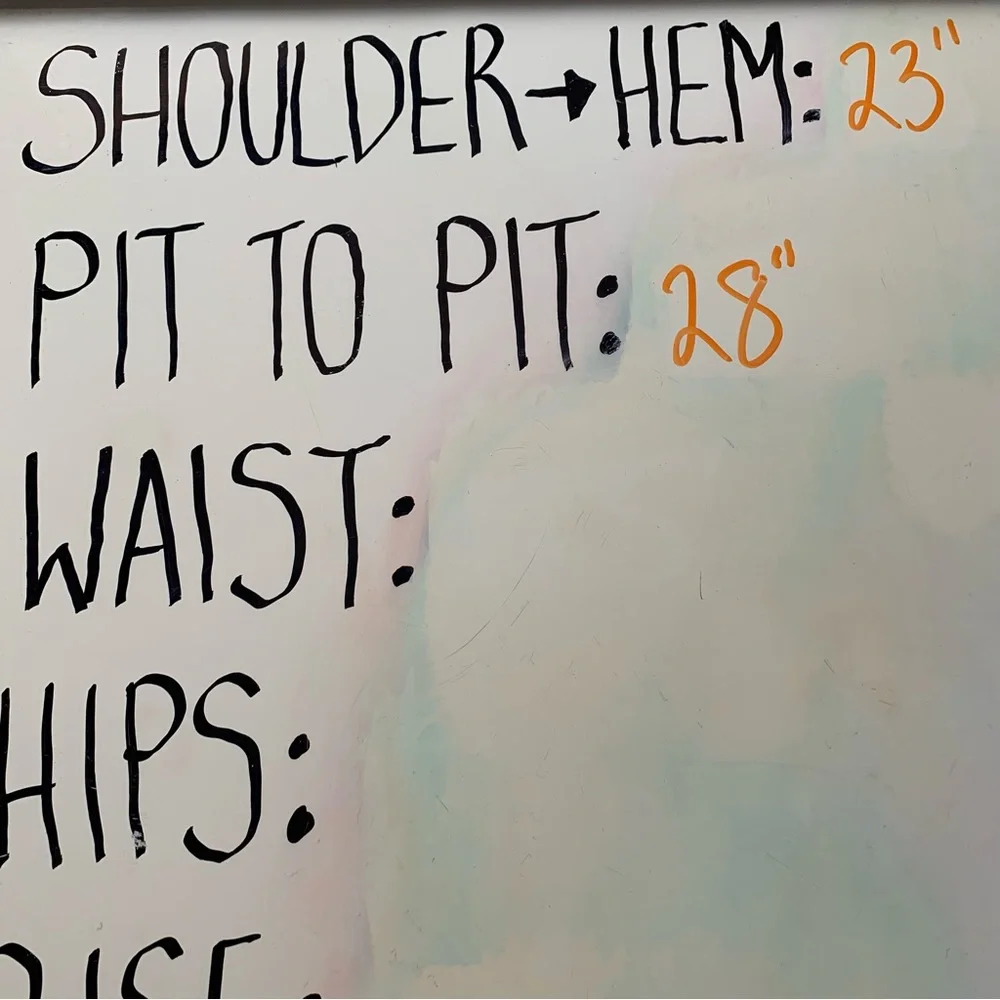 SHOULDER→HEM: 23"
PIT TO PIT: 28"
WAIST:
HIPS: